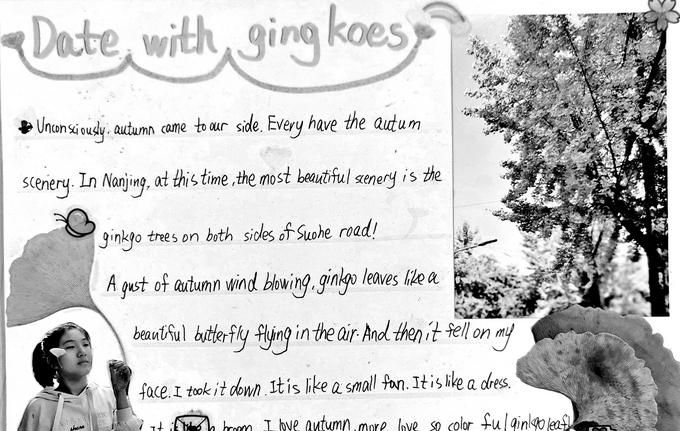 Date with gingkoes
Unconsciously, autumn came to our side. Every have the autum
scenery. In Nanjing, at this time, the most beautiful scenery is the
ginkgo trees on both sides of Suohe road!
A gust of autumn wind blowing, ginkgo leaves like a
beautiful butterfly flying in the air. And then it fell on my
face. I took it down. It is like a small fan. It is like a dress.
It broom. I love autumn, more love so color ful ginkgo leaf